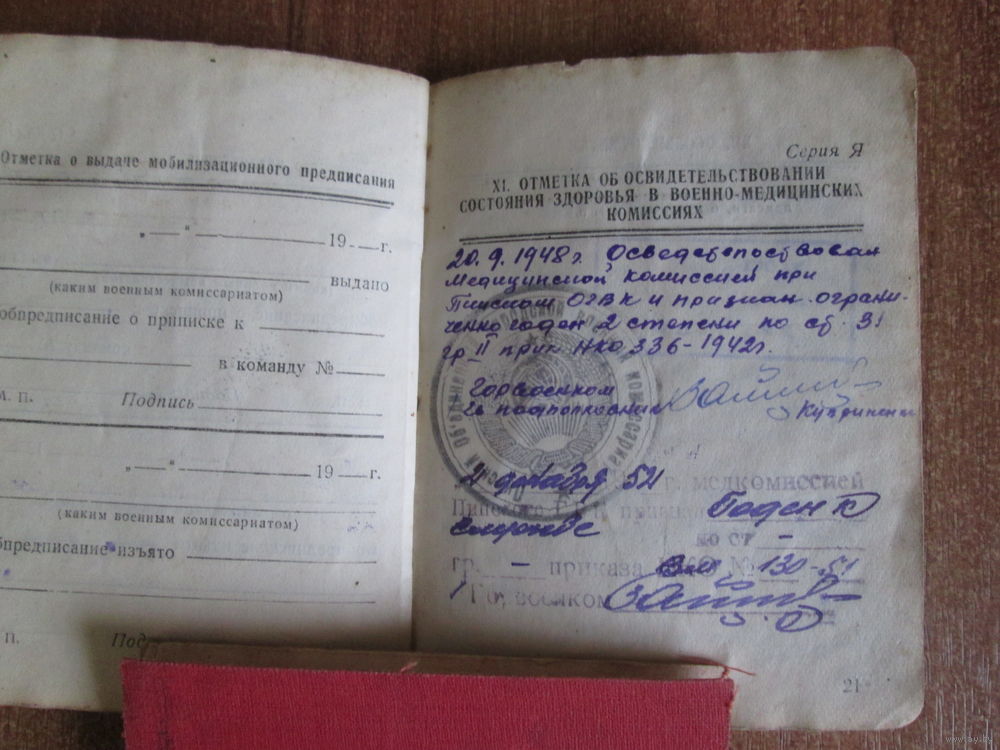 Отметка о выдаче мобилизационного предписания
„ — “ 19 — г.
выдано
(каким военным комиссариатом)
обпредписание о приписке к
в команду №
м. п. Подпись
„ — “ 19 — г.
(каким военным комиссариатом)
обпредписание изъято
п. Под
Серия Я
XI. ОТМЕТКА ОБ ОСВИДЕТЕЛЬСТВОВАНИИ
СОСТОЯНИЯ ЗДОРОВЬЯ В ВОЕННО-МЕДИЦИНСКИХ
КОМИССИЯХ
20.9.1948г. Осведетельствован
медицинской комиссией при
Пинском ОГВК и признан ограни-
ченно годен 2 степени по ст. 31
гр II прик НКО 336-1942г.
Горвоенком
подполковник
декабря 51 г. медкомиссией
Пинского признан Годен к
по ст —
гр. — приказа № 130-51
Горвоенком
21
www.ay.by